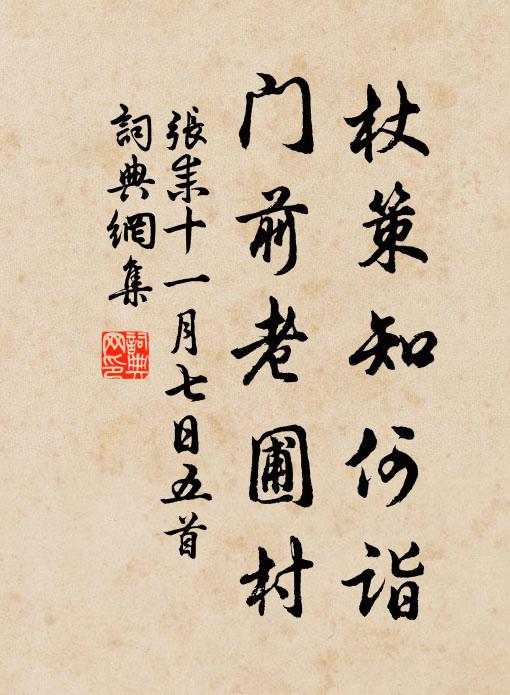 杖策知何诣
门前老圃村
張耒十一月七日五首
詞典網集
詞典網印